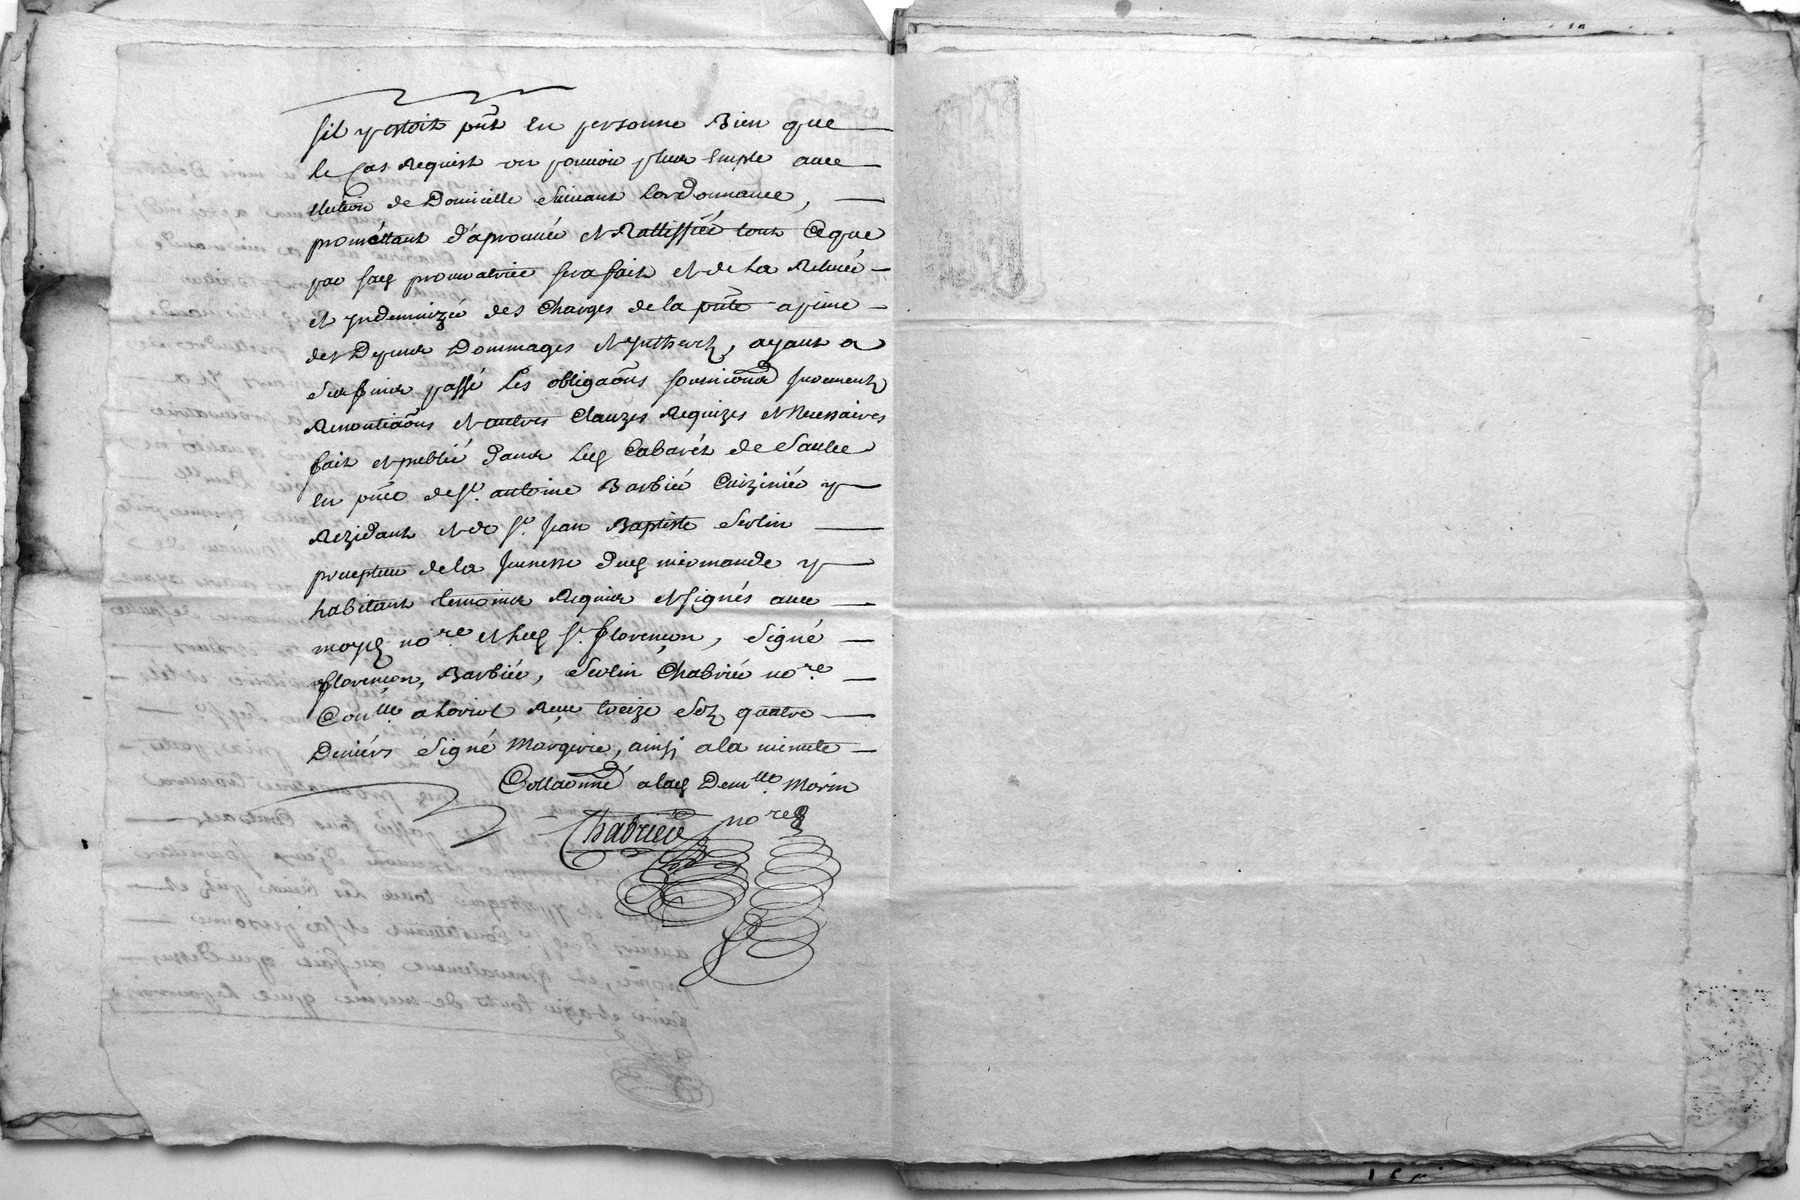 sil y estoit pnt en personne Bien que
le Cas Requist un pouvoir plus Emple avec
Election de Domicille Suivant Lordonnance,
prométtant d'aprouvér et Rattiffiér tout Ceque
par sad procuratrice sera fait et de La Relevér
et yndemnizér des Charges de la pnte a peine
des Depens Dommages et ynthérets, ayant a
Ses fins passé Les obligaons soumissions Jurements
Renontiaons et autres Clauzes Requizes et Necessaires
fait et publié dans Led Cabarét de Saulce
En pnce de Sr. antoine Barbiér Cuiziniér y
Rezidant et de Sr. Jean Baptiste Serlin
precepteur de la Jeunesse dud mirmande y
habitant temoins Requis et signés avec
moyd nore et Led Sr. florencon, Signé
florencon, Barbiér, Serlin Chabriér nore
Conlle a Loriol Reçu treize Solz quatre
Deniérs Signé Margerie, ainsi a la minute
Collaonné a lad Demlle. Morin
Chabrier nore